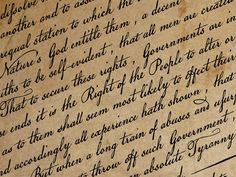 dissolve
another, and to assume
equal station to which the
Nature's God entitle them, a decent
ths to be self-evident, that all men are create
That to secure these rights, Governments are in
e ends it is the Right of the People to alter or
as to them shall seem most likely to effect their
d accordingly all experience hath shewn, that
But when a long train of abuses and usurp
throw off such Government,
an absolute Tyranny